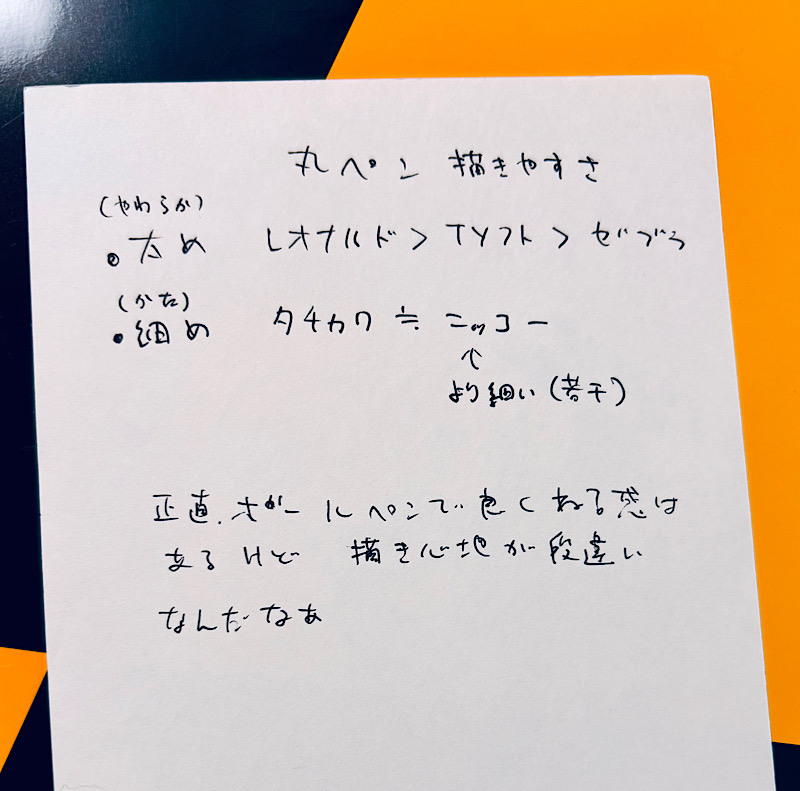 丸ペン 描きやすさ
(やわらか)
・太め レオナルド > TYフト > ゼブラ
(かた)
・細め タチカワ ≒ ニッコー
↑
より細い(若干)
正直.ボールペンで良くねる感は
あるけど 描き心地が段違い
なんだなあ